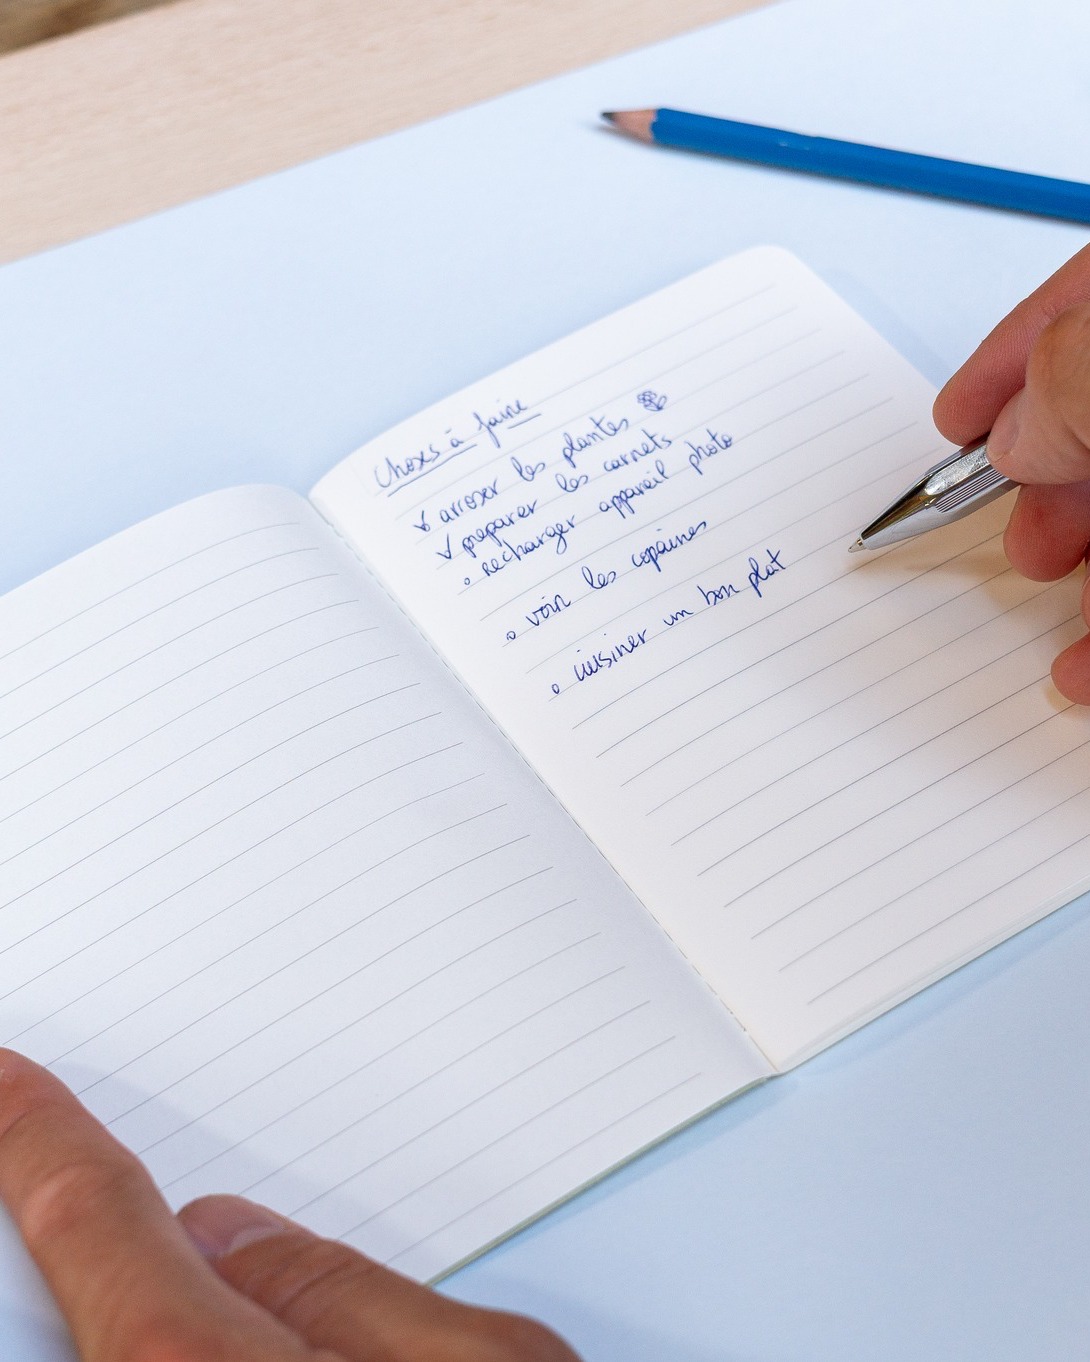 Choses à faire
✓ arroser les plantes
✓ préparer les carnets
○ recharger appareil photo
○ voir les copaines
○ cuisiner un bon plat